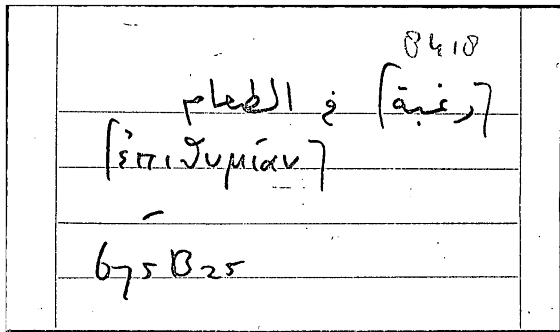 8418
[رغبة] في الطعام
[ἐπιθυμίαν]
–
675 B 25